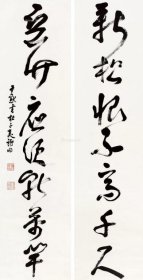 新松恨不高千尺
恶竹应须斩万竿